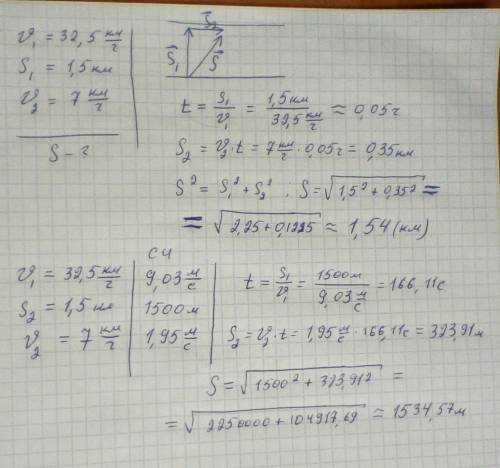 S⃗₂
v₁ = 32,5 км/ч
S₁ = 1,5 км
S⃗₁ S⃗
v₂ = 7 км/ч
S - ?
t = S₁/v₁ = 1,5 км / 32,5 км/ч ≈ 0,05 ч
S₂ = v₂ · t = 7 км/ч · 0,05 ч = 0,35 км
S² = S₁² + S₂² ; S = √(1,5² + 0,35²) =
= √(2,25 + 0,1225) ≈ 1,54 (км)
СИ
v₁ = 32,5 км/ч | 9,03 м/с
S₂ = 1,5 км | 1500 м
v₂ = 7 км/ч | 1,95 м/с
t = S₁/v₁ = 1500 м / 9,03 м/с = 166,11 с
S₂ = v₂ · t = 1,95 м/с · 166,11 с = 323,91 м
S = √(1500² + 323,91²) =
= √(2250000 + 104917,69) ≈ 1534,57 м